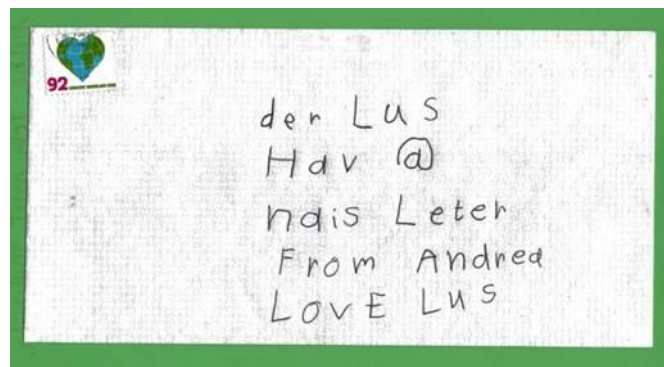 92
der LUS
Hav @
nais Leter
From Andrea
LOVE LUS